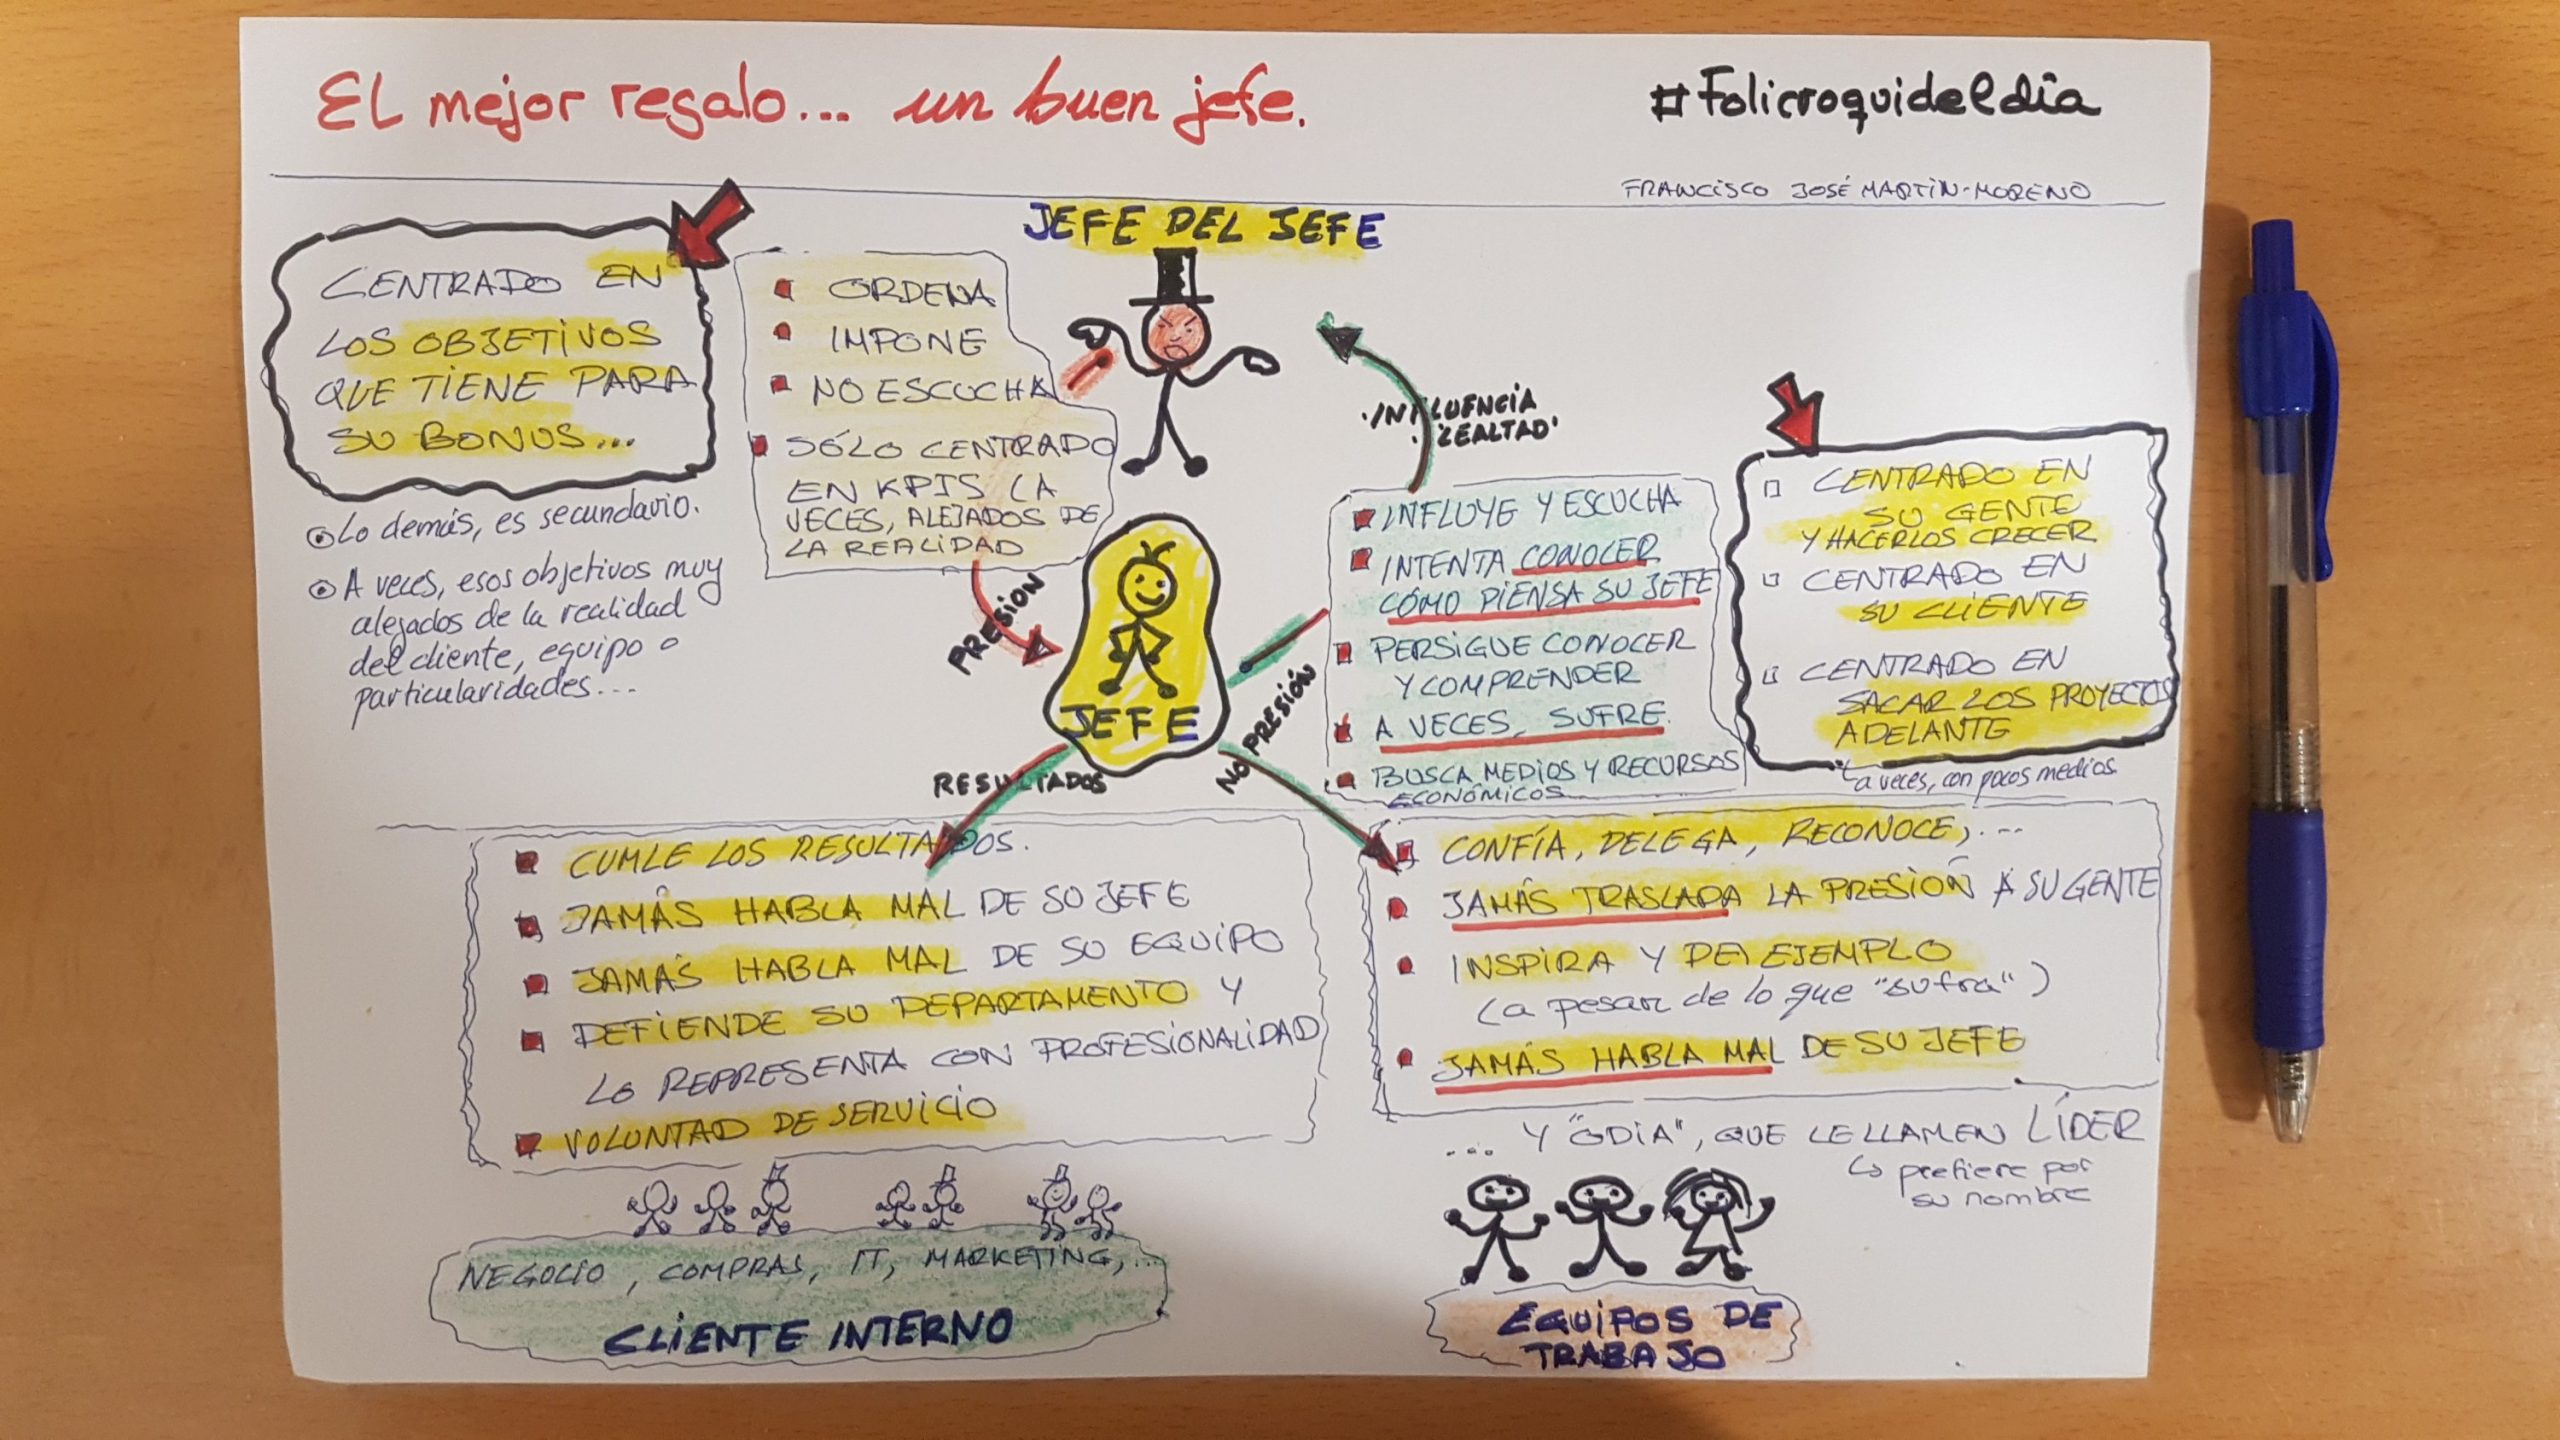 El mejor regalo... un buen jefe.
#Folicroquideldia
FRANCISCO JOSÉ MARTIN-MORENO
CENTRADO EN
LOS OBJETIVOS
QUE TIENE PARA
SU BONUS...
Lo demás, es secundario.
A veces, esos objetivos muy
alejados de la realidad
del cliente, equipo o
particularidades...
ORDENA
IMPONE
NO ESCUCHA
SÓLO CENTRADO
EN KPIS (A
VECES, ALEJADOS DE
LA REALIDAD
JEFE DEL JEFE
PRESIÓN
JEFE
INFLUENCIA
LEALTAD
INFLUYE Y ESCUCHA
INTENTA CONOCER
CÓMO PIENSA SU JEFE
PERSIGUE CONOCER
Y COMPRENDER
A VECES, SUFRE.
BUSCA MEDIOS Y RECURSOS
ECONÓMICOS
CENTRADO EN
SU GENTE
Y HACERLOS CRECER
CENTRADO EN
SU CLIENTE
CENTRADO EN
SACAR LOS PROYECTOS
ADELANTE
a veces, con pocos medios
RESULTADOS
CUMLE LOS RESULTADOS.
JAMÁS HABLA MAL DE SU JEFE
JAMÁS HABLA MAL DE SU EQUIPO
DEFIENDE SU DEPARTAMENTO Y
LO REPRESENTA CON PROFESIONALIDAD
VOLUNTAD DE SERVICIO
NEGOCIO, COMPRAS, IT, MARKETING,...
CLIENTE INTERNO
NO PRESIÓN
CONFÍA, DELEGA, RECONOCE,...
JAMÁS TRASLADA LA PRESIÓN A SU GENTE
INSPIRA Y DA EJEMPLO
(a pesar de lo que "sufra")
JAMÁS HABLA MAL DE SU JEFE
.... Y "ODIA", QUE LE LLAMEN LÍDER
↳ prefiere por
su nombre
EQUIPOS DE
TRABAJO